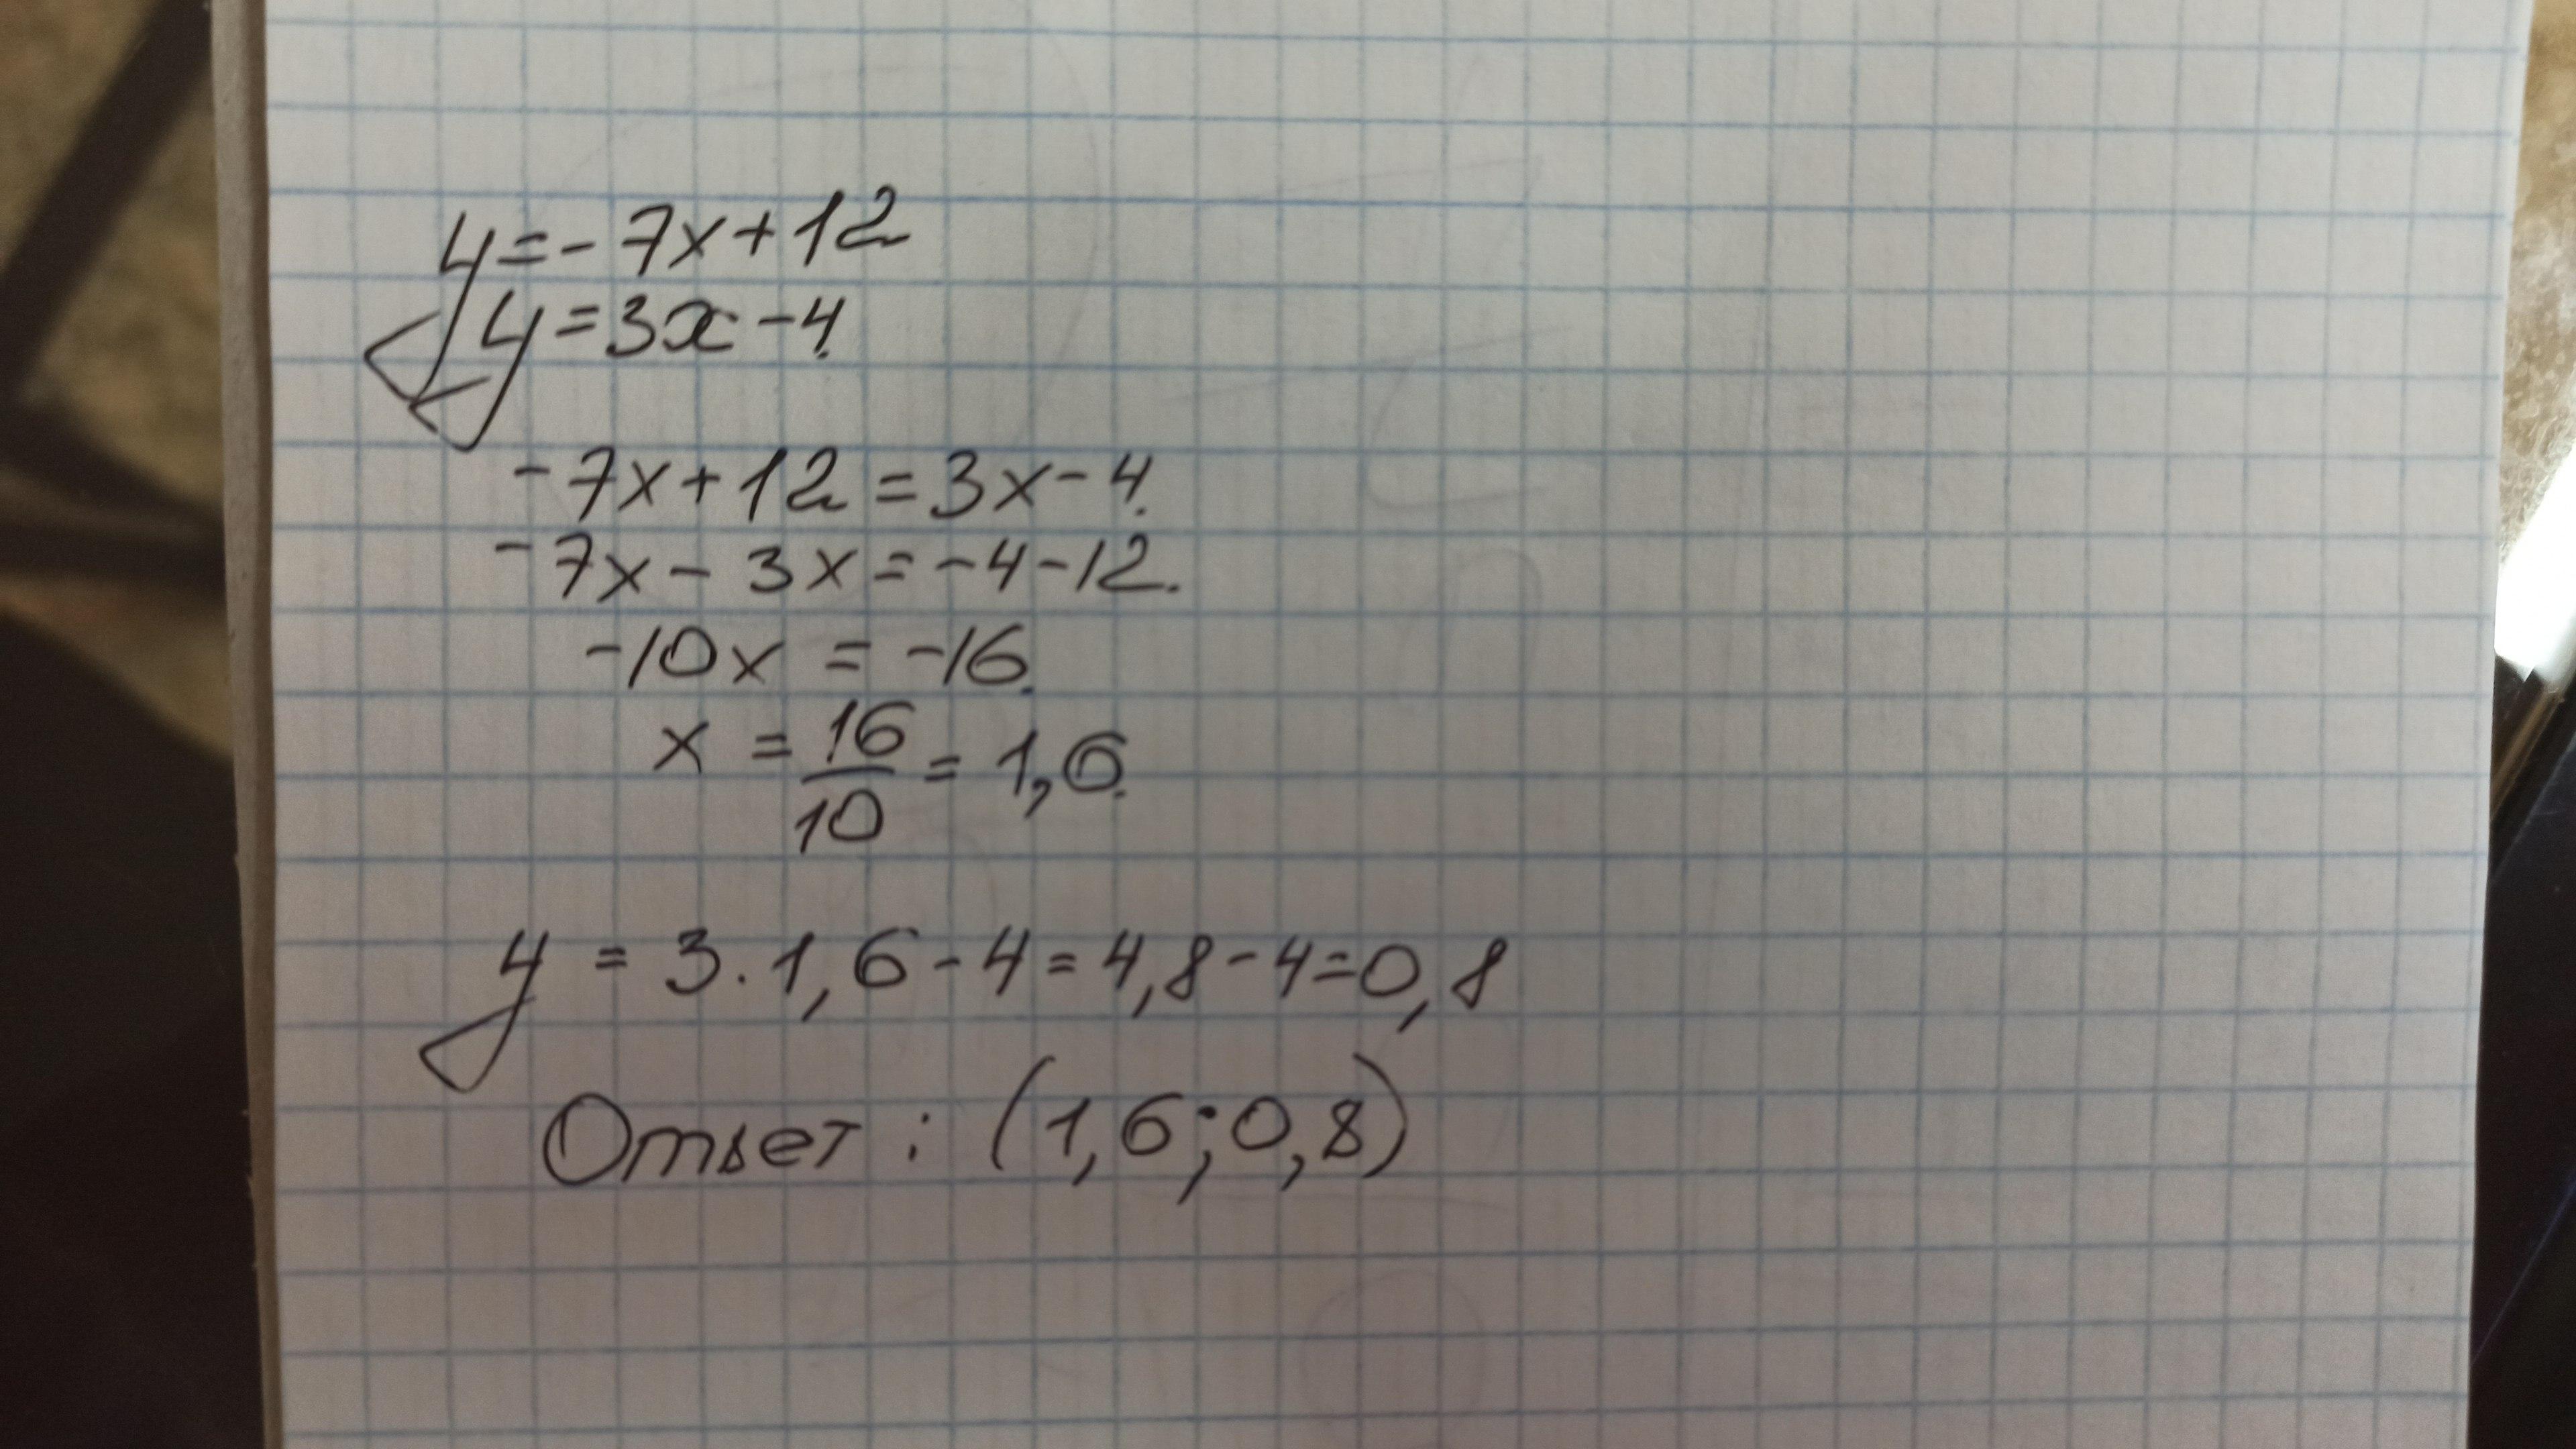 y=-7x+12
y=3x-4.
-7x+12=3x-4.
-7x-3x=-4-12.
-10x=-16.
x=16/10=1,6.
y=3·1,6-4=4,8-4=0,8
Ответ: (1,6;0,8)